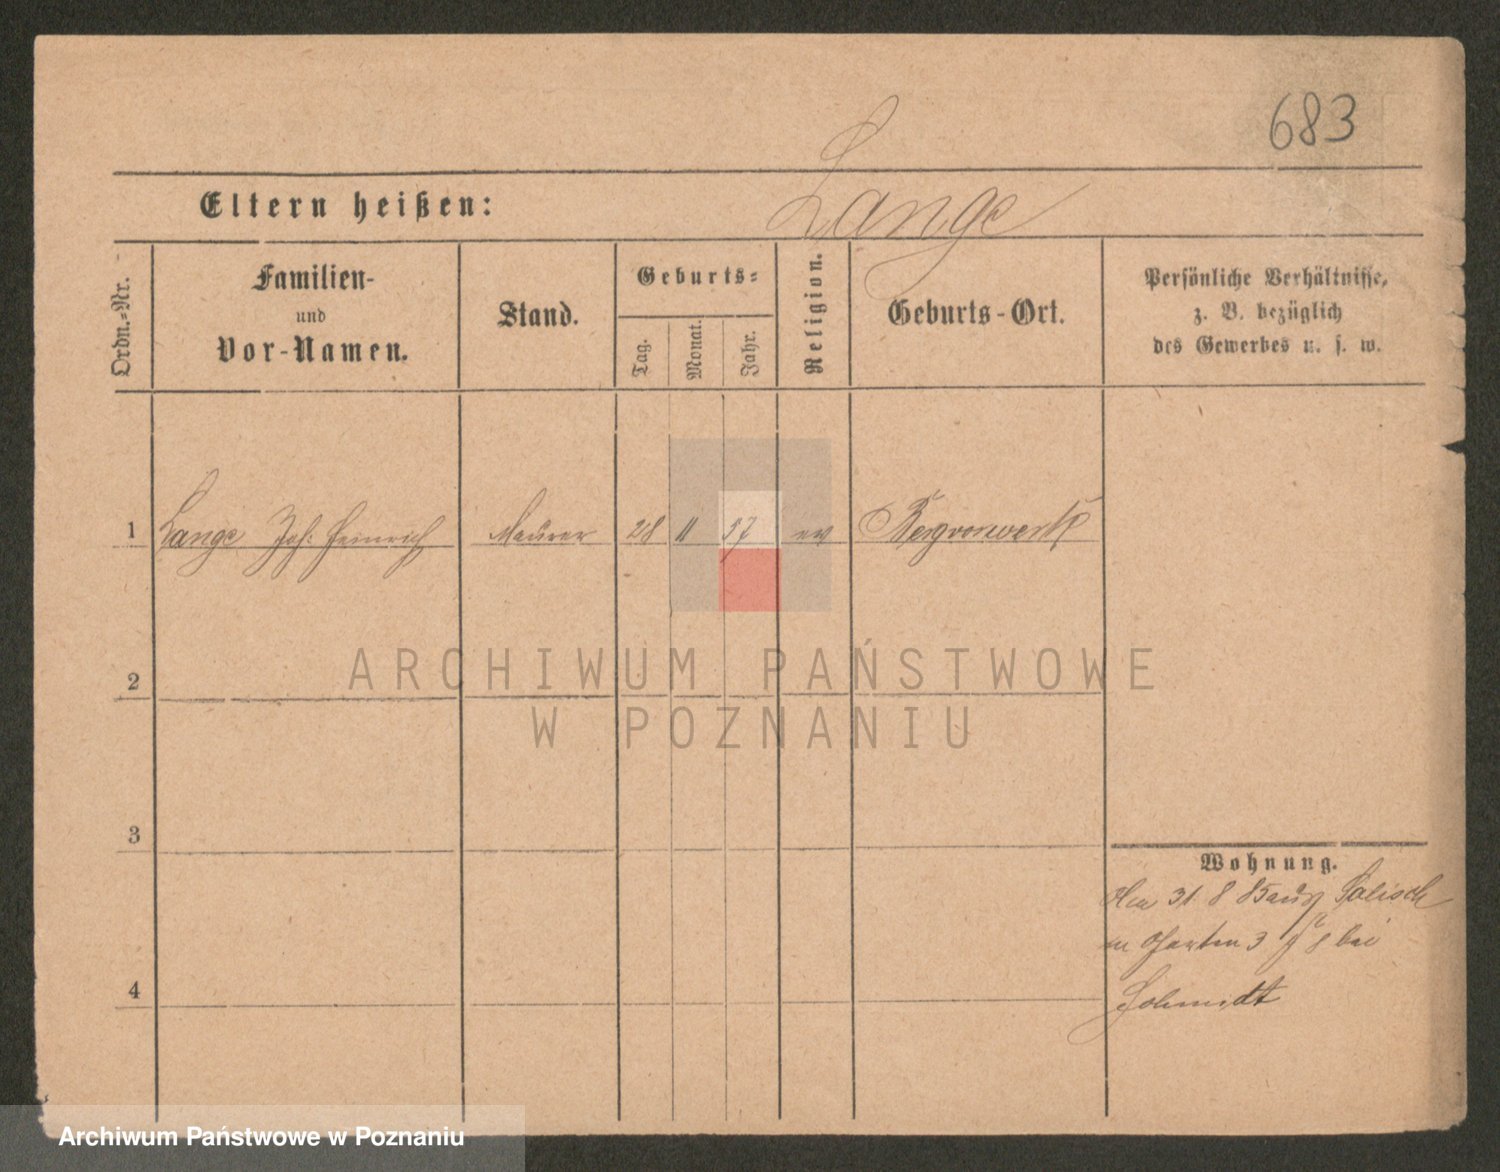 683
Lange
Eltern heißen:
Ordn.-Nr.
Familien-
und
Vor-Namen.
Stand.
Geburts-
Tag.
Monat.
Jahr.
Religion.
Geburts-Ort.
Persönliche Verhältnisse,
z. B. bezüglich
des Gewerbes u. s. w.
1 Lange Joh: Heinrich Maurer 28 11 57 ev Bergvorwerk
2
ARCHIWUM PAŃSTWOWE
W POZNANIU
3
Wohnung.
31 8 85 aus
Garten 3 bei
Schmidt
4
Archiwum Państwowe w Poznaniu